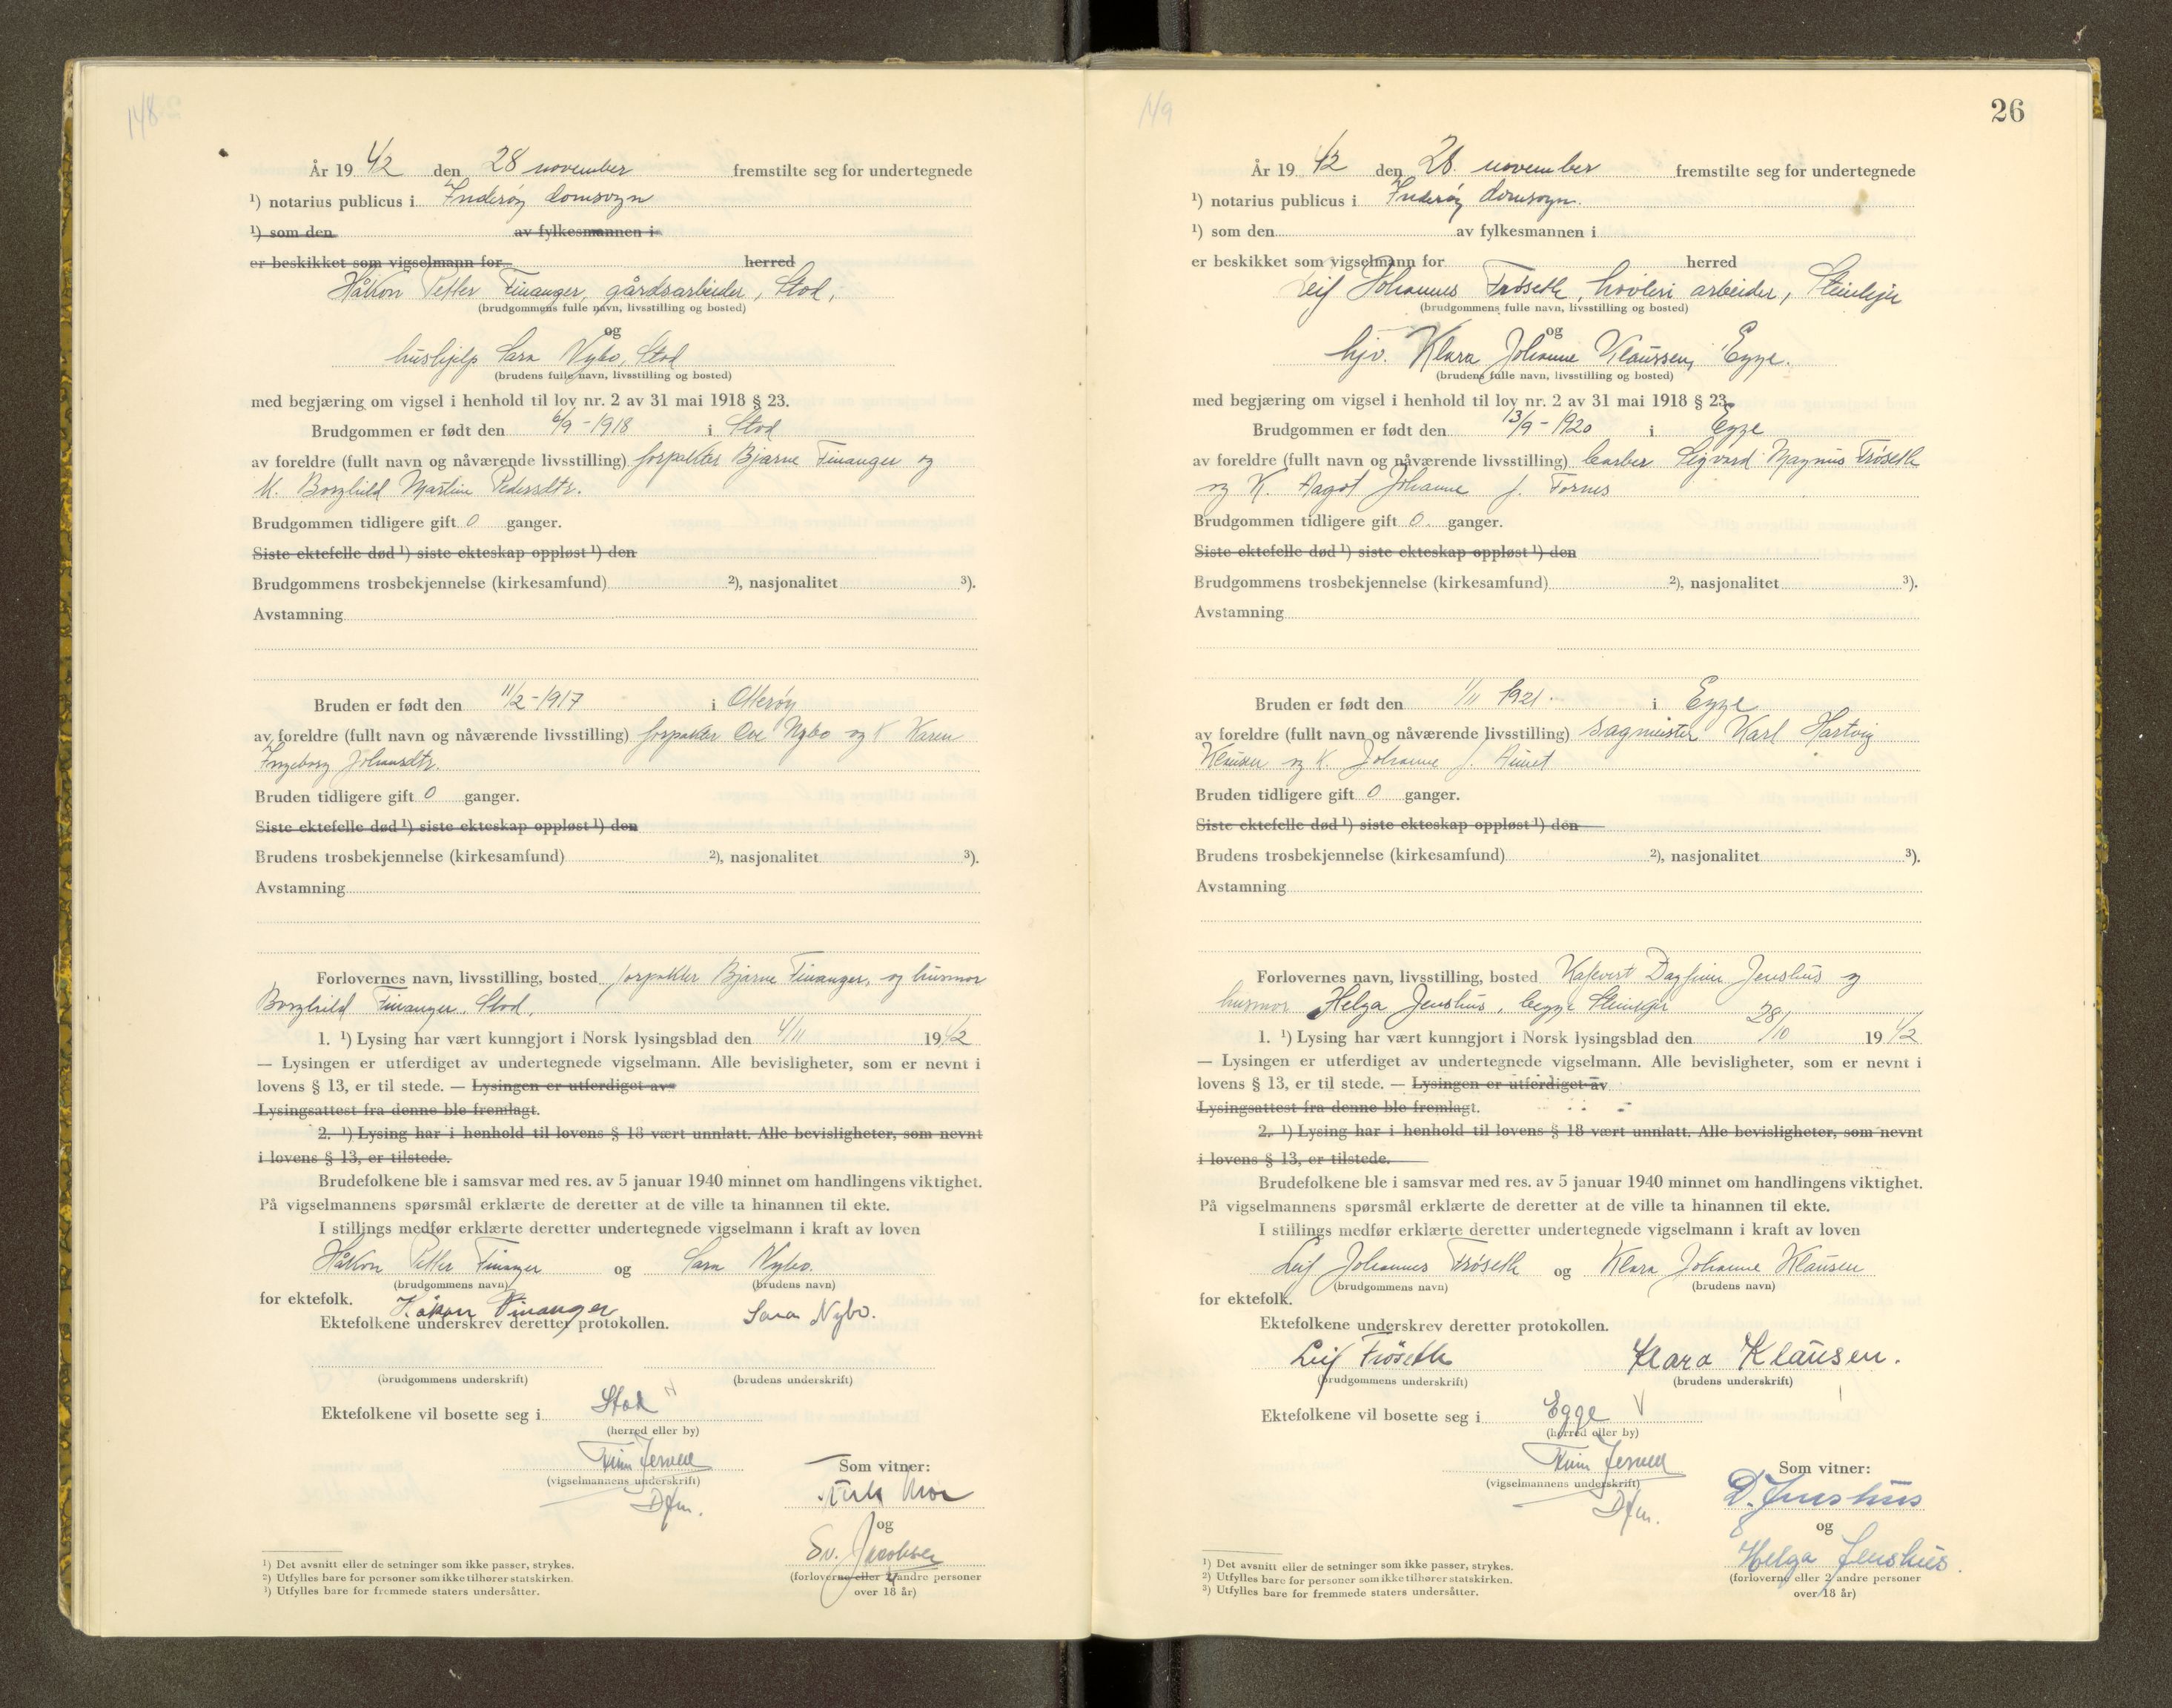 148
År 19 42 den 28 november fremstilte seg for undertegnede
¹) notarius publicus i Inderøy domsogn
¹) som den av fylkesmannen i
er beskikket som vigselmann for herred
Håkon Petter Finanger, gårdsarbeider, Stod,
(brudgommens fulle navn, livsstilling og bosted)
og
hushjelp Sara Nybo, Stod
(brudens fulle navn, livsstilling og bosted)
med begjæring om vigsel i henhold til lov nr. 2 av 31 mai 1918 § 23.
Brudgommen er født den 6/9-1918 i Stod
av foreldre (fullt navn og nåværende livsstilling) forpakter Bjarne Finanger og
K. Borghild Martine Pedersdtr.
Brudgommen tidligere gift 0 ganger.
Siste ektefelle død ¹) siste ekteskap oppløst ¹) den
Brudgommens trosbekjennelse (kirkesamfund) ²), nasjonalitet ³).
Avstamning
Bruden er født den 11/2-1917 i Otterøy
av foreldre (fullt navn og nåværende livsstilling) forpakter Ove Nybo og K Karen
Ingeborg Johansdtr.
Bruden tidligere gift 0 ganger.
Siste ektefelle død ¹) siste ekteskap oppløst ¹) den
Brudens trosbekjennelse (kirkesamfund) ²), nasjonalitet ³).
Avstamning
Forlovernes navn, livsstilling, bosted forpakter Bjarne Finanger, og husmor
Borghild Finanger, Stod,
1. ¹) Lysing har vært kunngjort i Norsk lysingsblad den 4/11 1942
— Lysingen er utferdiget av undertegnede vigselmann. Alle bevisligheter, som er nevnt i
lovens § 13, er til stede. — Lysingen er utferdiget av
Lysingsattest fra denne ble fremlagt.
2. ¹) Lysing har i henhold til lovens § 18 vært unnlatt. Alle bevisligheter, som nevnt
i lovens § 13, er tilstede.
Brudefolkene ble i samsvar med res. av 5 januar 1940 minnet om handlingens viktighet.
På vigselmannens spørsmål erklærte de deretter at de ville ta hinannen til ekte.
I stillings medfør erklærte deretter undertegnede vigselmann i kraft av loven
Håkon Petter Finanger og Sara Nybo.
(brudgommens navn) (brudens navn)
for ektefolk. Håkon Finanger Sara Nybo.
Ektefolkene underskrev deretter protokollen.
(brudgommens underskrift) (brudens underskrift)
Ektefolkene vil bosette seg i Stod
(herred eller by)
Finn Jervell
(vigselmannens underskrift)
Dfm.
Som vitner:
og
Sv. Jacobsen
(forloverne eller 2 andre personer
over 18 år)
¹) Det avsnitt eller de setninger som ikke passer, strykes.
²) Utfylles bare for personer som ikke tilhører statskirken.
³) Utfylles bare for fremmede staters undersåtter.
149
26
År 19 42 den 28. november fremstilte seg for undertegnede
¹) notarius publicus i Inderøy domsogn.
¹) som den av fylkesmannen i
er beskikket som vigselmann for herred
Leif Johannes Frøseth, høvleri arbeider, Steinkjer
(brudgommens fulle navn, livsstilling og bosted)
og
hjv. Klara Johanne Klaussen, Egge.
(brudens fulle navn, livsstilling og bosted)
med begjæring om vigsel i henhold til lov nr. 2 av 31 mai 1918 § 23.
Brudgommen er født den 13/9-1920 i Egge
av foreldre (fullt navn og nåværende livsstilling) barber Sigvard Magnus Frøseth
og K. Aagot Johanne f. Fornes
Brudgommen tidligere gift 0. ganger.
Siste ektefelle død ¹) siste ekteskap oppløst ¹) den
Brudgommens trosbekjennelse (kirkesamfund) ²), nasjonalitet ³).
Avstamning
Bruden er født den 1/11 1921. i Egge
av foreldre (fullt navn og nåværende livsstilling) sagmester Karl Hartvig
Klausen og K. Johanne f. Aunet
Bruden tidligere gift 0 ganger.
Siste ektefelle død ¹) siste ekteskap oppløst ¹) den
Brudens trosbekjennelse (kirkesamfund) ²), nasjonalitet ³).
Avstamning
Forlovernes navn, livsstilling, bosted Kafevert Dagfinn Jenshus og
husmor Helga Jenshus, begge Steinkjer
1. ¹) Lysing har vært kunngjort i Norsk lysingsblad den 28/10 1942
— Lysingen er utferdiget av undertegnede vigselmann. Alle bevisligheter, som er nevnt i
lovens § 13, er til stede. — Lysingen er utferdiget av
Lysingsattest fra denne ble fremlagt.
2. ¹) Lysing har i henhold til lovens § 18 vært unnlatt. Alle bevisligheter, som nevnt
i lovens § 13, er tilstede.
Brudefolkene ble i samsvar med res. av 5 januar 1940 minnet om handlingens viktighet.
På vigselmannens spørsmål erklærte de deretter at de ville ta hinannen til ekte.
I stillings medfør erklærte deretter undertegnede vigselmann i kraft av loven
Leif Johannes Frøseth og Klara Johanne Klausen
(brudgommens navn) (brudens navn)
for ektefolk.
Ektefolkene underskrev deretter protokollen.
Leif Frøseth Klara Klausen.
(brudgommens underskrift) (brudens underskrift)
Ektefolkene vil bosette seg i Egge
(herred eller by)
Finn Jervell
(vigselmannens underskrift)
Dfm.
Som vitner:
D. Jenshus
og
Helga Jenshus.
(forloverne eller 2 andre personer
over 18 år)
¹) Det avsnitt eller de setninger som ikke passer, strykes.
²) Utfylles bare for personer som ikke tilhører statskirken.
³) Utfylles bare for fremmede staters undersåtter.